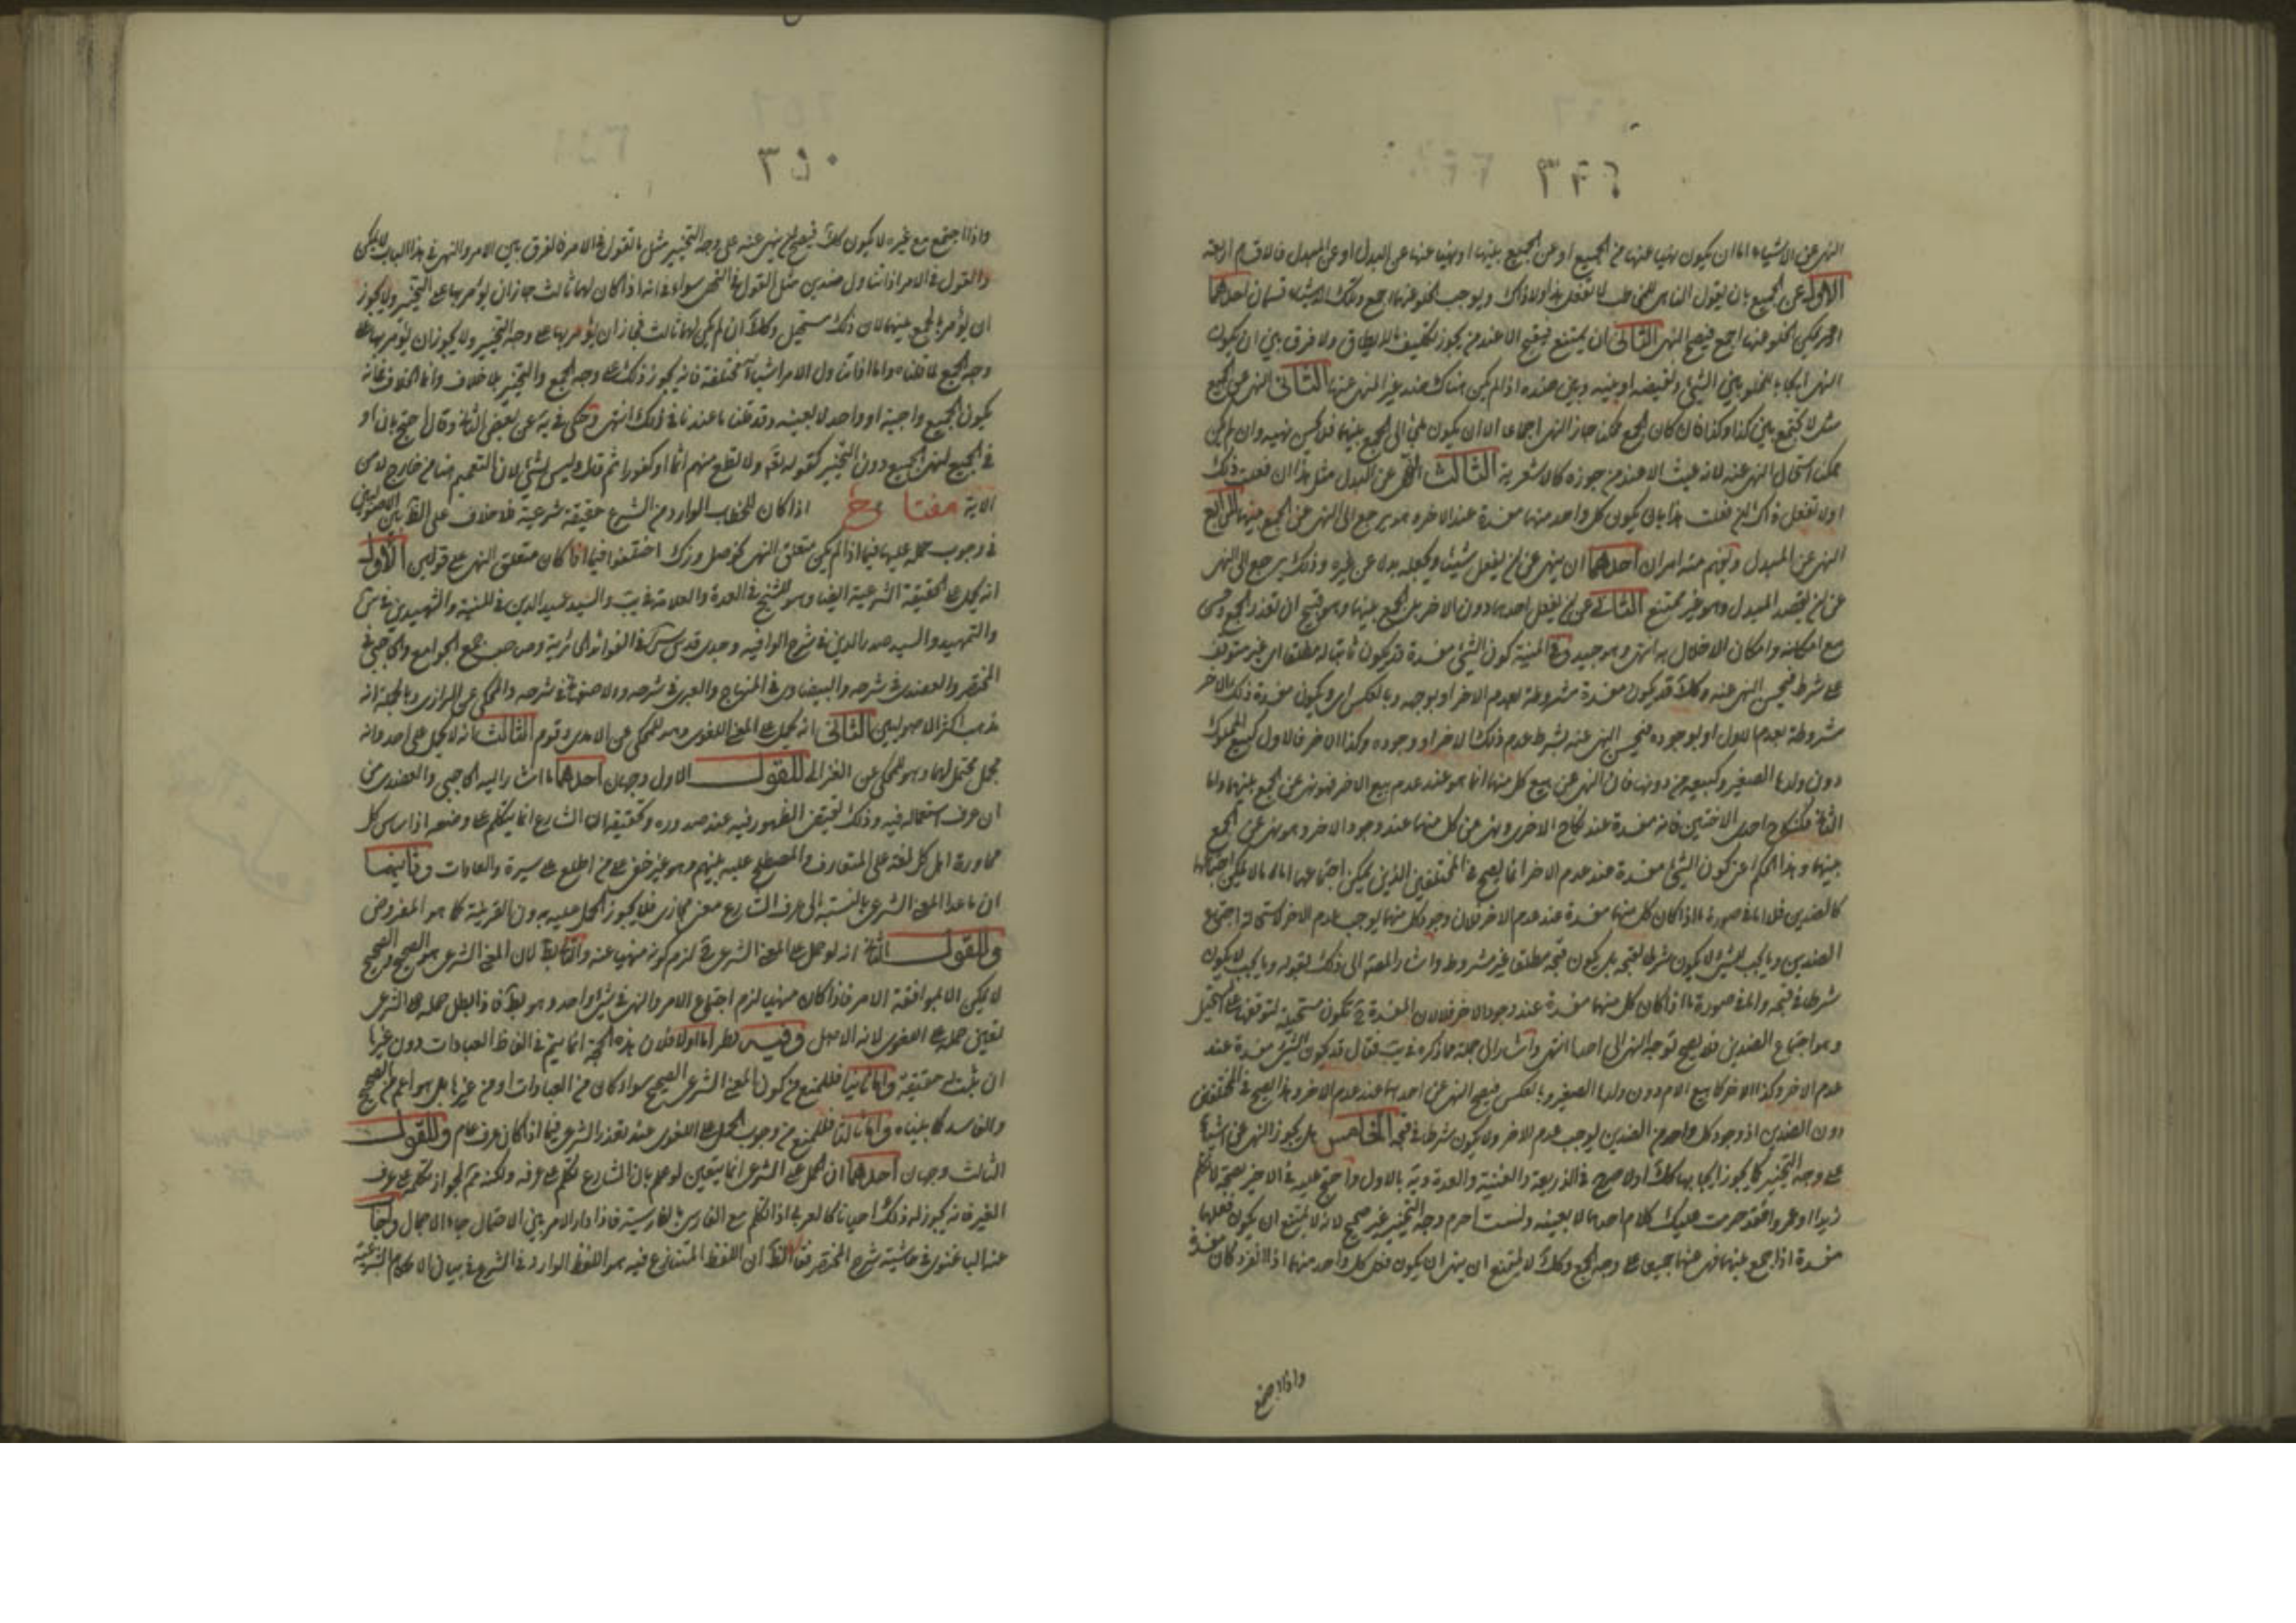 ٣٤٩
النهى عن الاشياء اما ان يكون نهيا عنها عن الجميع او عن الجميع بينها او نهيا عنها على البدل او عن البدل فالاقسام اربعة
الاول عن الجميع بان يقول الناهى للمخاطب لا تفعل هذا ولا ذاك ويوجب الخلو عنها اجمع وتلك الاشياء قسمان احدهما
ان يمكن الخلو عنها اجمع فيصح النهى الثانى ان يمتنع فيقبح الا عند من يجوز تكليف ما لا يطاق ولا فرق بين ان يكون
النهى ايجابا للخلو بين الشئ ونقيضه او بينه وبين ضده اذا لم يكن هناك ضد غير المنهى عنها الثانى النهى عن الجمع
مثل لا تجمع بين كذا وكذا فان كان الجمع ممكنا جاز النهى اجماعا الا ان يكون ملجئ الى الجمع بينهما فلا يحسن نهيه وان لم يكن
ممكنا استحال النهى عنه لانه عبث الا عند من جوزه كالاشعرية الثالث النهى عن البدل مثل هذا ان فعلت ذلك
او لا تفعل ذاك ان فعلت هذا بان يكون كل واحد منهما مفسدة عند الاخر وهو يرجع الى النهى عن الجمع بينهما الرابع
النهى عن البدل ويفهم منه امران احدهما ان ينهى عن ان يفعل شيئا ويجعله بدلا عن غيره وذلك يرجع الى النهى
عن ان يقصد البدل وهو غير ممتنع الثانى عن ان يفعل احدهما دون الاخر بل الجمع بينهما وهو قبيح ان تعذر الجمع وحسن
مع امكانه وامكان الاخلال به انتهى وهو جيد وفى المنية كون الشئ مفسدة قد يكون ثابتا له مطلقا اى غير متوقف
على شرط فيحسن النهى عنه وكلا قد يكون مفسدة مشروطة بعدم الاخر او بوجوده وبالعكس اى ويكون مفسدة ذلك الاخر
مشروطة بعدم الاول او بوجوده فيحسن النهى عنه بشرط عدم ذلك الاخر او وجوده وكذا الاخر فالاول كبيع المملوك
دون ولدها الصغير وكبيعه من دونها فان النهى عن بيع كل منهما انما هو عند عدم بيع الاخر فهو نهى عن الجمع بينهما واما
الثانى فكنكاح احدى الاختين فانه مفسدة عند نكاح الاخرى ونهى عن كل منهما عند وجود الاخر وهو نهى عن الجمع
بينهما وهذا الحكم اعنى كون الشئ مفسدة عند عدم الاخر انما يصح فى المختلفين الذين يمكن اجتماعهما اما ما لا يمكن اجتماعها
كالضدين فلا اما فى صورة ما اذا كان كل منهما مفسدة عند عدم الاخر فلان وجود كل منهما يوجب عدم الاخر لاستحالة اجتماع
الضدين وما يجب للشئ لا يكون شرطا لقبحه بل يكون قبحه مطلقا غير مشروط واشار المصنف الى ذلك بقوله وما يجب لا يكون
شرطا فى قبحه واما فى صورة ما اذا كان كل منهما مفسدة عند وجود الاخر فلان المفسدة ح تكون مستحيلة لتوقفها على المستحيل
وهو اجتماع الضدين فلا يصح توجه النهى الى احدهما انتهى واشار الى جملة ما ذكره فى يب فقال قد يكون الشئ مفسدة عند
عدم الاخر وكذا الاخر كما بيع الام دون ولدها الصغير وبالعكس فيصح النهى عن احدهما عند عدم الاخر وهذا يصح فى المختلفين
دون الضدين اذ وجود كل واحد من الضدين يوجب عدم الاخر ولا يكون شرطا فى قبحه الخامس هل يجوز النهى عن اشياء
على وجه التخيير كما يجوز ايجابها كلا او لا صرح فى الذريعة والغنية والعدة ويه بالاول واحتج عليه فى الاخير بصحة لا تكلم
زيدا او عمروا فقد حرمت عليك كلام احدهما لا بعينه ولست احرم وجه التخيير غير صحيح لانه لا يمتنع ان يكون فعلهما
مفسدة اذا جمع بينهما فهى عنهما جميعا على وجه الجمع وكلا لا يمتنع ان ينهى ان يكون فعل كل واحد منهما اذا انفرد كان مفسدة
واذا اجتمع
٣٥٠
واذا اجتمع مع غيره لا يكون كلا فيصح ان ينهى عنه على وجه التخيير مثل ما نقول فى الامر فالفرق بين الامر والنهى فى هذا الباب لا يمكن
والقول فى الامر اذا تناول ضدين مثل القول فى النهى سواء فى انه اذا كان لهما ثالث جاز ان يؤمر بهما على التخيير ولا يجوز
ان يؤمر بالجمع بينهما لان ذلك مستحيل وكلا ان لم يكن لهما ثالث فجاز ان يؤمر بهما على وجه التخيير ولا يجوز ان يؤمر بهما على
وجه الجمع لما قلناه واما اذا تناول الامر اشياء مختلفة فانه يجوز ذلك على وجه الجمع والتخيير بلا خلاف وانما الخلاف فى انه
يكون الجميع واجبة او واحد لا بعينه وقد قلنا ما عندنا فى ذلك انتهى وحكى فى يه عن بعض الثانى وقال احتج بان او
فى الجميع لنهى الجميع دون التخيير كقوله تعالى ولا تطع منهم اثما او كفورا ثم قال وليس بشئ لان التعميم هنا من خارج لا من
الاية مفتاح اذا كان للخطاب الوارد من الشرع حقيقة شرعية فلا خلاف على الظ بين الاصوليين
فى وجوب حمله عليها فيما اذا لم يكن متعلق النهى نحو صل وزك اختلفوا فيما اذا كان متعلق النهى على قولين الاول
انه يحمل على الحقيقة الشرعية ايضا وهو للشيخ فى العدة والعلامة فى يب والسيد عميد الدين فى المنية والشهيدين فى
والتمهيد والسيد صدر الدين فى شرح الوافيه وجدى قدس سره فى الفوائد الحائرية وصاحب جمع الجوامع والحاجبى فى
المختصر والعضدى فى شرحه والبيضاوى فى المنهاج والعبرى فى شرحه والاصفهانى فى شرحه والمحكى عن الرازى وبالجملة انه
مذهب اكثر الاصوليين الثانى انه يحمل على المعنى اللغوى وهو للمحكى عن الامدى وقوم الثالث انه لا يحمل على احد وانه
مجمل محتمل لهما وهو للمحكى عن الغزالى للقول الاول وجهان احدهما ما اشار اليه الحاجبى والعضدى من
ان عرف استعماله فيه وذلك يقتضى الظهور فيه عند صدوره وتحقيقه ان الشارع انما يتكلم على وضعه اذ اساس كل
محاورة اهل كل لغة على المتعارف والمصطلح عليه بينهم وهو غير خفى على من اطلع على سيرة والعادات وثانيهما
ان ما عدا المعنى الشرعى بالنسبة الى عرف الشارع معنى مجازى فلا يجوز الحمل عليه بدون القرينة كما هو المفروض
وللقول الثانى انه لو حمل على المعنى الشرعى ح لزم كونه منهيا عنه والتالى بط لان المعنى الشرعى هو الصحيح والصحيح
لا يمكن الا لموافقة الامر فاذا كان منهيا لزم اجتماع الامر والنهى فى شئ واحد وهو بط فاذا بطل حمله على الشرعى
تعين حمله على اللغوى لانه الاصل وفيه نظر اما اولا فلان هذه الحجة انما يتم فى الفاظ العبادات دون غيرها
ان ثبت له حقيقة واما ثانيا فللمنع من كون المعنى الشرعى الصحيح سواء كان من العبادات او من غيرها بل هو اعم من الصحيح
والفاسد كما بيناه واما ثالثا فللمنع من وجوب الحمل على اللغوى عند تعذر الشرعى فيما اذا كان عرف عام وللقول
الثالث وجهان احدهما ان الحمل على الشرعى انما يتعين لو علم بان الشارع تكلم على عرفه ولكنه مم لجواز تكلمه على عرف
الغير فانه يجوز له ذلك احيانا كالعربى اذا تكلم مع الفارسى بالفارسية فاذا دار الامر بين الاحتمال جاء الاجمال واجاب
عنه الباغنوى فى حاشية شرح المختصر فقال الظ ان اللفظ المتنازع فيه هو اللفظ الوارد فى الشرع فى بيان الاحكام الشرعية